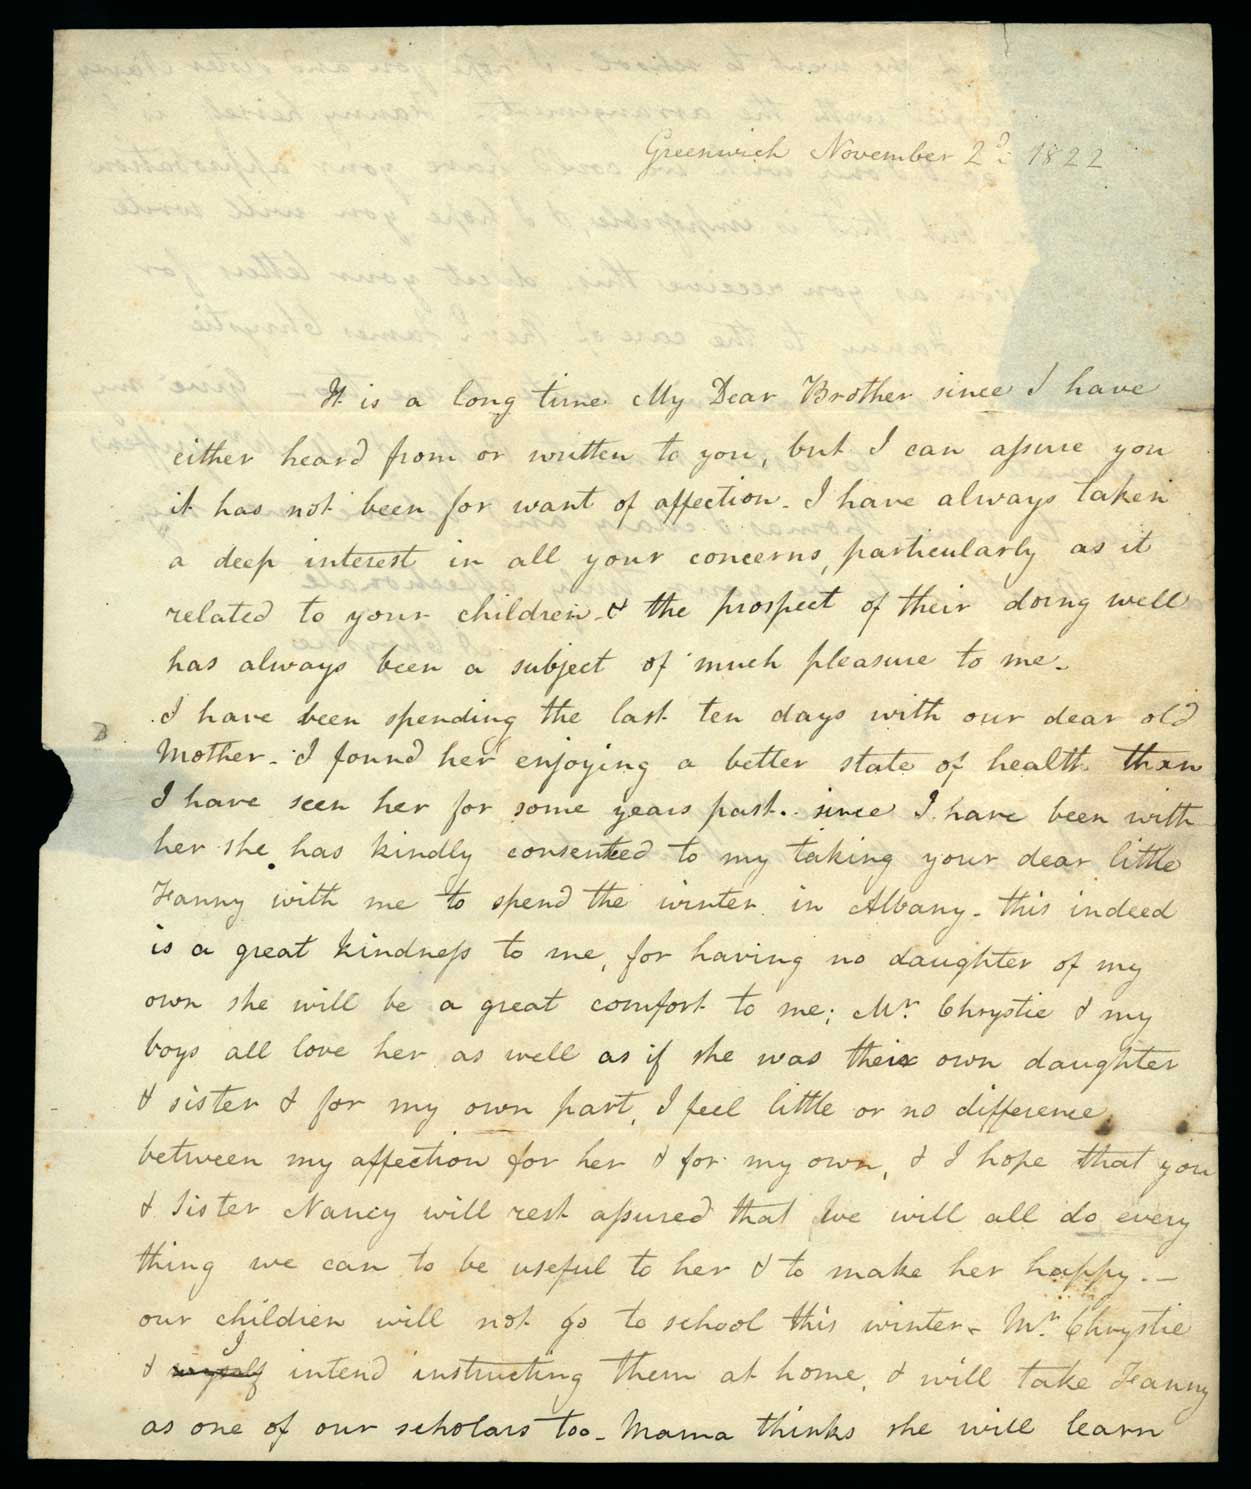 Greenwich November 2d 1822
It is a long time My Dear Brother since I have
either heard from or written to you, but I can assure you
it has not been for want of affection. I have always taken
a deep interest in all your concerns, particularly as it
related to your children & the prospect of their doing well
has always been a subject of much pleasure to me.
I have been spending the last ten days with our dear old
Mother. I found her enjoying a better state of health than
I have seen her for some years past. since I have been with
her she has kindly consented to my taking your dear little
Fanny with me to spend the winter in Albany. this indeed
is a great kindness to me, for having no daughter of my
own she will be a great comfort to me; Mr. Chrystie & my
boys all love her as well as if she was their own daughter
& sister & for my own part, I feel little or no difference
between my affection for her & for my own, & I hope that you
& Sister Nancy will rest assured that we will all do every
thing we can to be useful to her & to make her happy. —
our children will not go to school this winter. Mr. Chrystie
& myself I intend instructing them at home, & will take Fanny
as one of our scholars too. Mama thinks she will learn